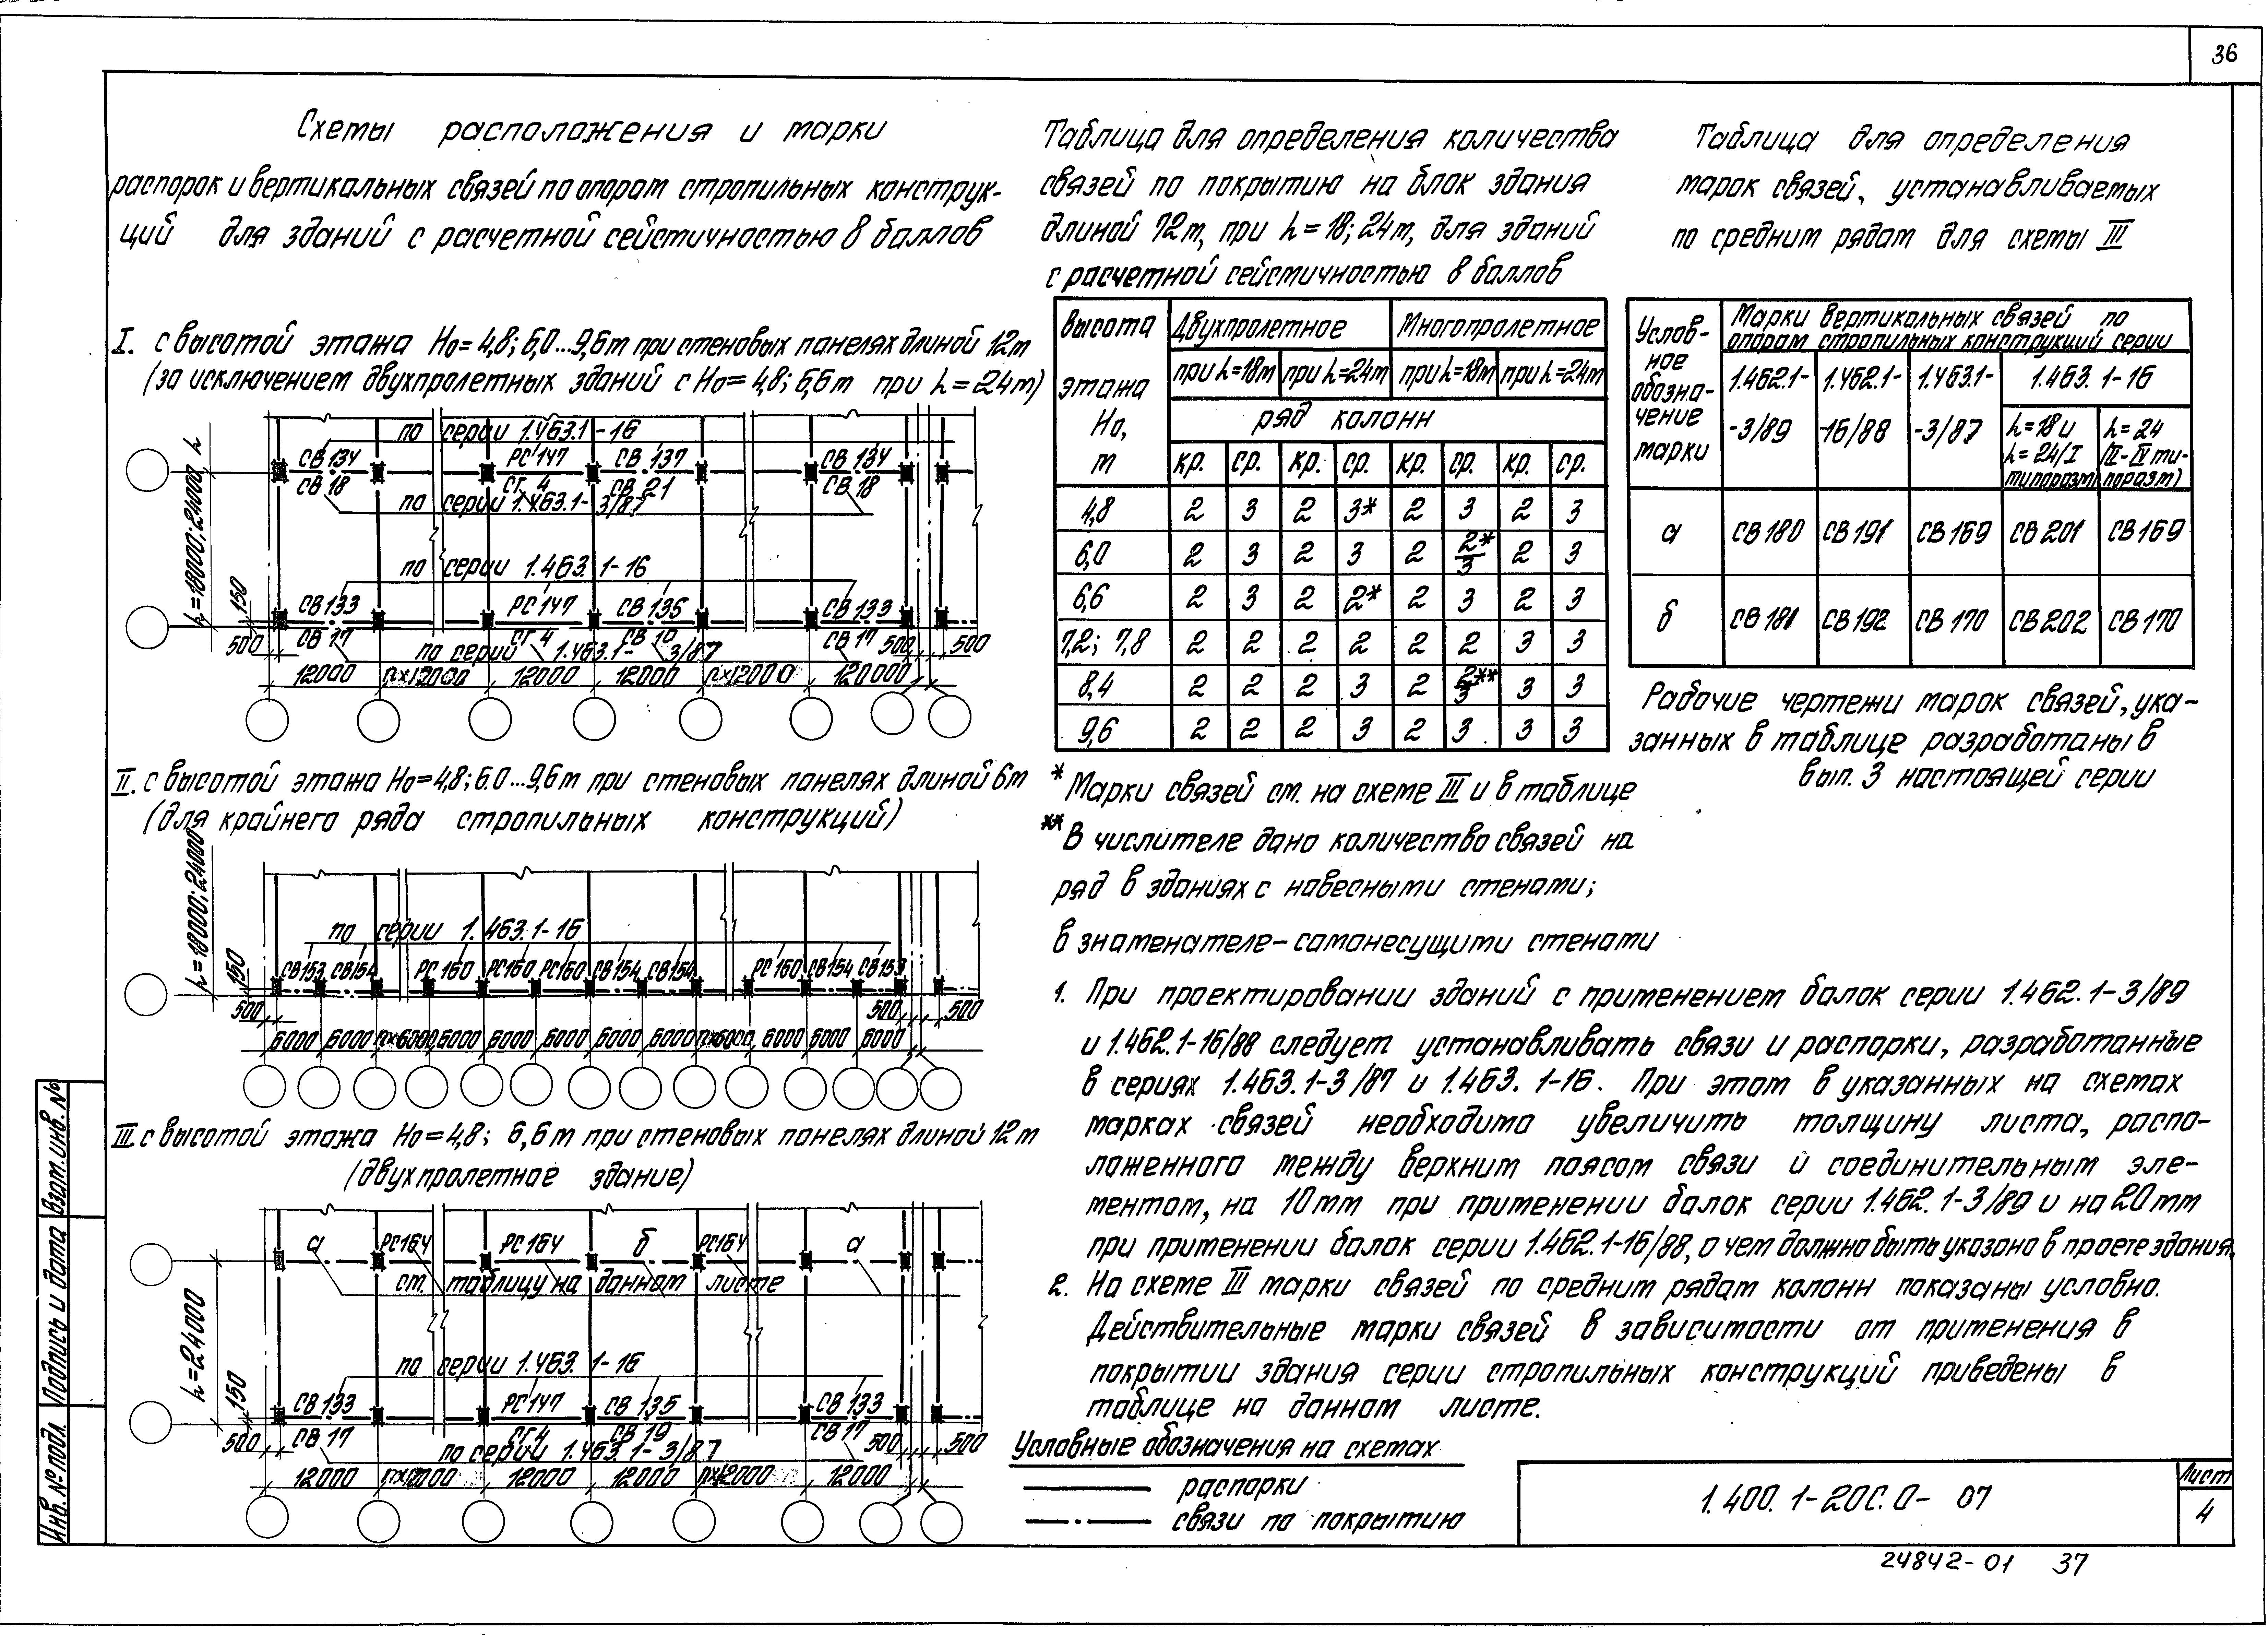 36
Схемы расположения и марки
распорок и вертикальных связей по опорам стропильных конструк-
ций для зданий с расчетной сейсмичностью 8 баллов
I. с высотой этажа Н₀=4,8; 6,0...9,6м при стеновых панелях длиной 12м
(за исключением двухпролетных зданий с Н₀=4,8; 6,6м при h=24м)
по серии 1.463.1-16
СВ 134 РС 147 СВ 137 СВ 134
СВ 18 СГ 4 СВ 21 СВ 18
по серии 1.463.1-3/87
h=18000; 24000
по серии 1.463.1-16
150
СВ 133 РС 147 СВ 135 СВ 133
500 СВ 17 СГ 4 СВ 17 500 500
по серий 1.463.1-3/87
12000 n×12000 12000 12000 n×12000 120000
II. с высотой этажа Н₀=4,8; 6.0...9,6м при стеновых панелях длиной 6м
(для крайнего ряда стропильных конструкций)
h=18000; 24000
по серии 1.463.1-16
150
СВ153 СВ154 РС 160 РС160 РС160 СВ154 СВ154 РС 160 СВ154 СВ153
500 500 500
6000 6000 n×6000 6000 6000 6000 6000 6000 n×6000 6000 6000 6000
III. с высотой этажа Н₀=4,8; 6,6м при стеновых панелях длиной 12м
(двухпролетное здание)
а РС164 РС 164 б РС164 а
см. таблицу на данном листе
h=24000
по серии 1.463.1-16
150
СВ 133 РС 147 СВ 135 СВ 133
500 СВ 17 СГ4 СВ 19 СВ 17 500 500
по серии 1.463.1-3/87
12000 n×12000 12000 12000 n×12000 12000
Таблица для определения количества
связей по покрытию на блок здания
длиной 72м, при h=18; 24м, для зданий
с расчетной сейсмичностью 8 баллов
Высота этажа Н₀, м Двухпролетное Многопролетное
при h=18м при h=24м при h=18м при h=24м
ряд колонн
кр. ср. кр. ср. кр. ср. кр. ср.
4,8 2 3 2 3* 2 3 2 3
6,0 2 3 2 3 2 2*/3 2 3
6,6 2 3 2 2* 2 3 2 3
7,2; 7,8 2 2 2 2 2 2 3 3
8,4 2 2 2 3 2 2**/3 3 3
9,6 2 2 2 3 2 3 3 3
* Марки связей см. на схеме III и в таблице
** В числителе дано количество связей на
ряд в зданиях с навесными стенами;
в знаменателе - самонесущими стенами
Таблица для определения
марок связей, устанавливаемых
по средним рядам для схемы III
Услов-
ное
обозна-
чение
марки
Марки вертикальных связей по
опорам стропильных конструкций серии
1.462.1- 1.462.1- 1.463.1- 1.463.1-16
-3/89 -16/88 -3/87 h=18 и h=24
h=24(I (II-IV ти-
типоразм) поразм)
а СВ 180 СВ 191 СВ 169 СВ 201 СВ 169
б СВ 181 СВ 192 СВ 170 СВ 202 СВ 170
Рабочие чертежи марок связей, ука-
занных в таблице разработаны в
вып. 3 настоящей серии
1. При проектировании зданий с применением балок серии 1.462.1-3/89
и 1.462.1-16/88 следует устанавливать связи и распорки, разработанные
в сериях 1.463.1-3/87 и 1.463.1-16. При этом в указанных на схемах
марках связей необходимо увеличить толщину листа, распо-
ложенного между верхним поясом связи и соединительным эле-
ментом, на 10мм при применении балок серии 1.462.1-3/89 и на 20мм
при применении балок серии 1.462.1-16/88, о чем должно быть указано в проете здания.
2. На схеме III марки связей по средним рядам колонн показаны условно.
Действительные марки связей в зависимости от применения в
покрытии здания серии стропильных конструкций приведены в
таблице на данном листе.
Условные обозначения на схемах
распорки
связи по покрытию
1.400.1-20С.0-07
Лист
4
24842-01 37
Инв. № подл. Подпись и дата Взам. инв. №